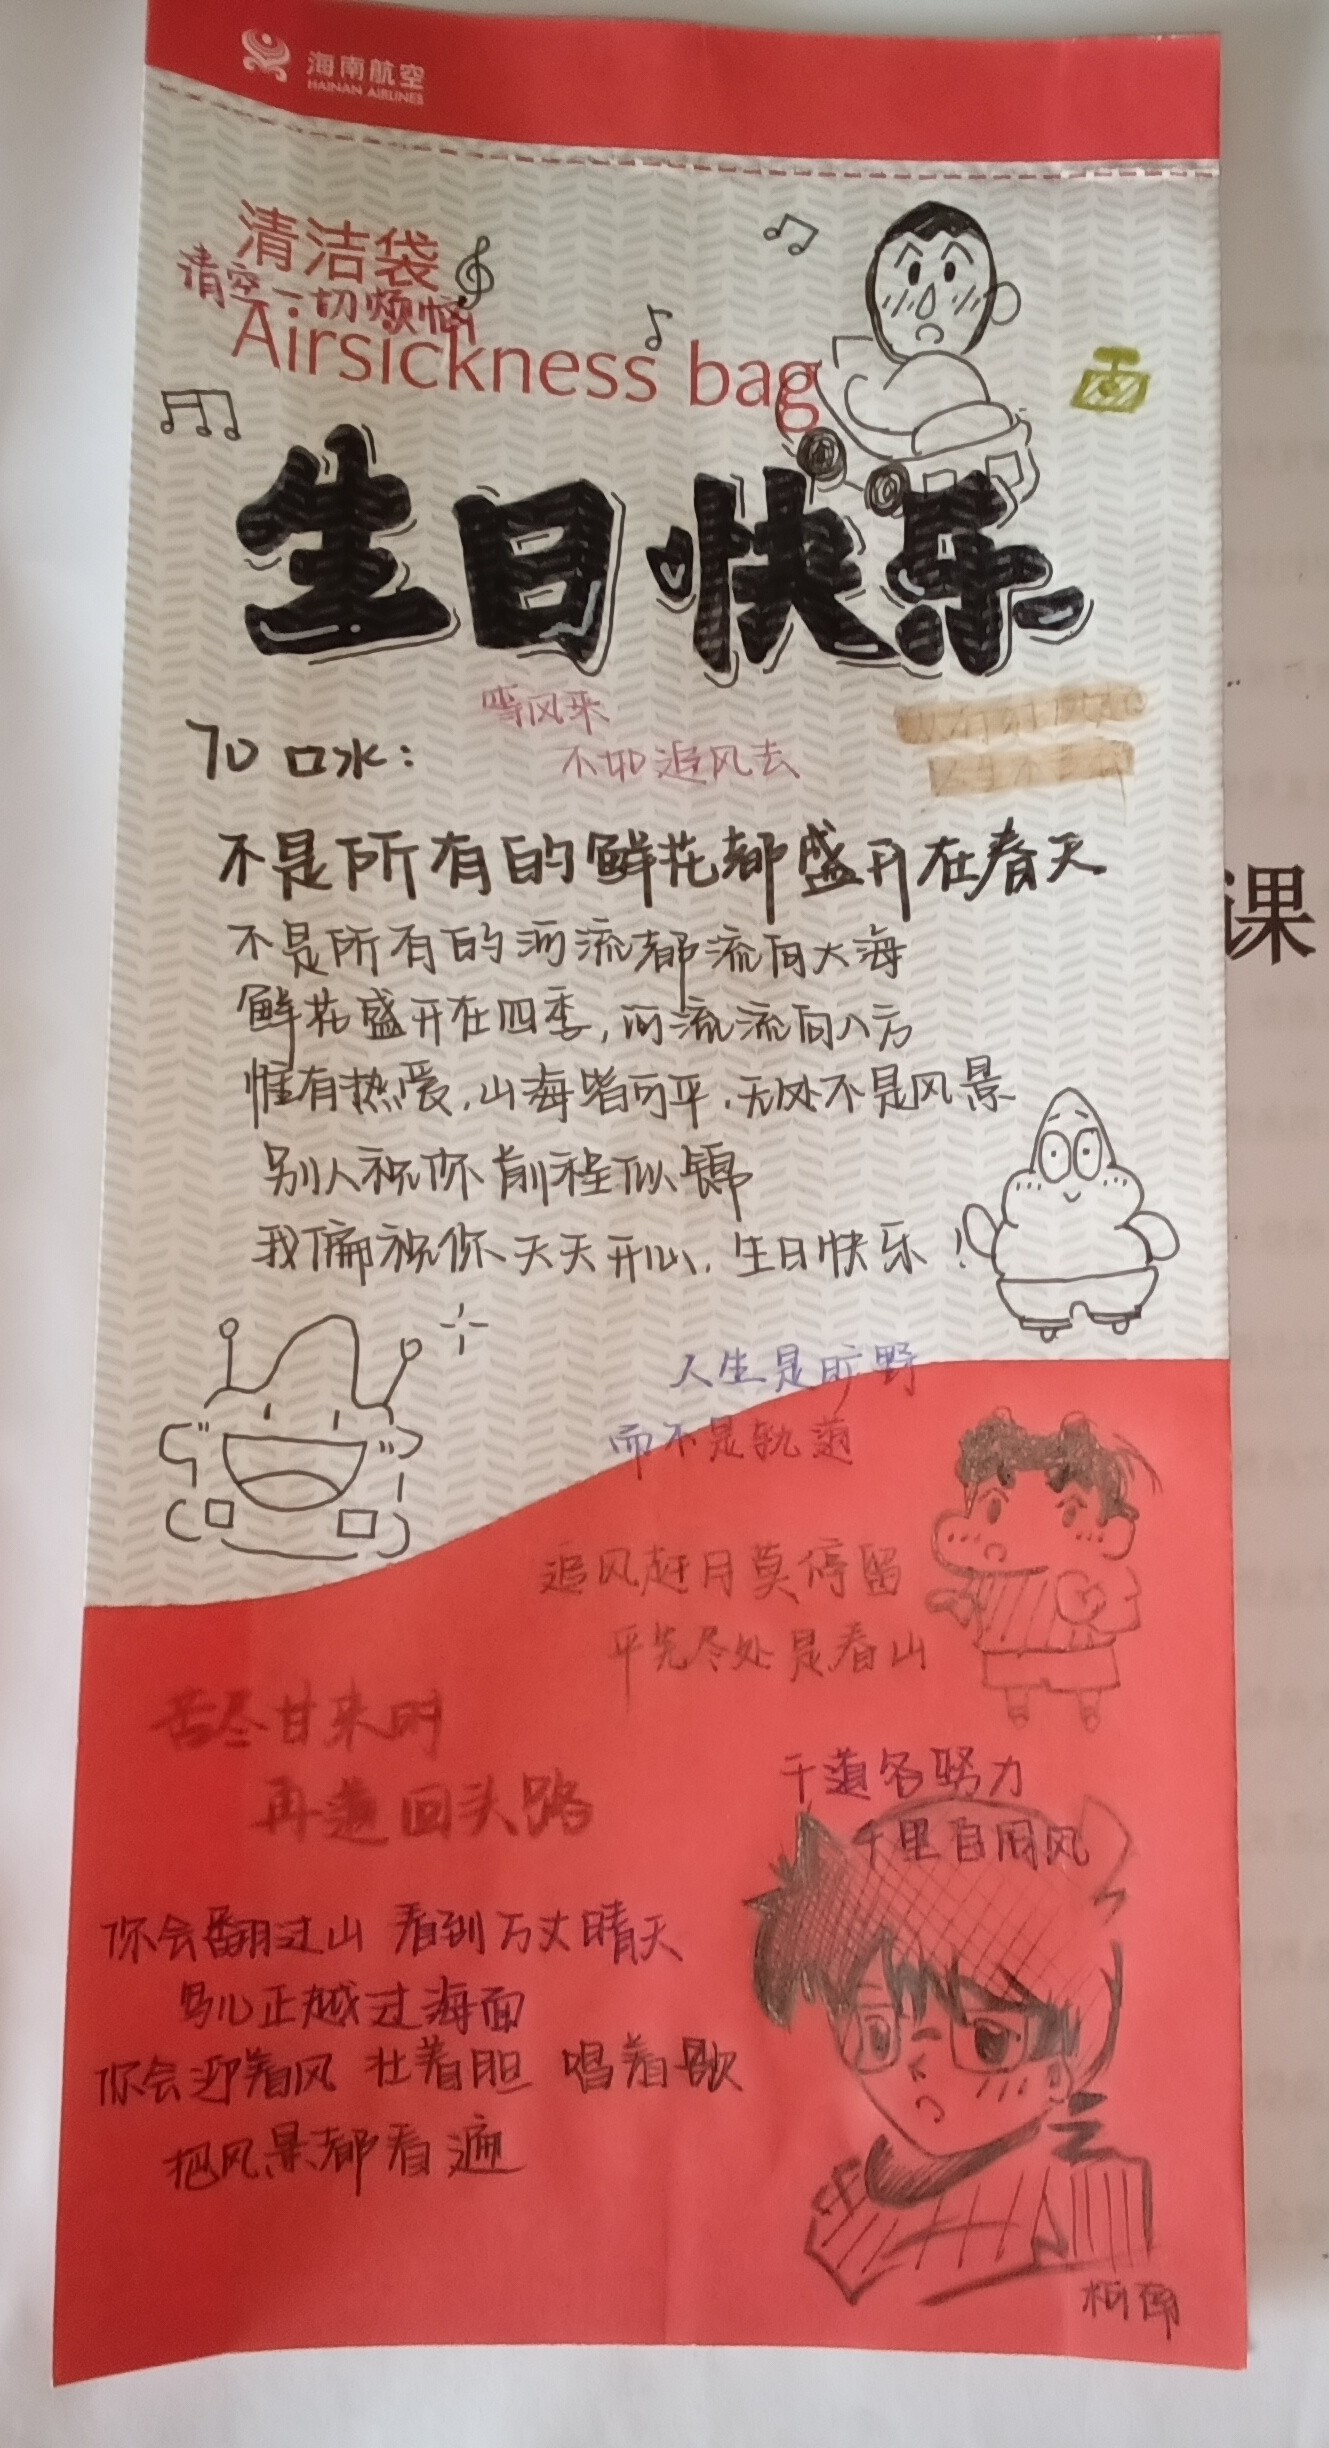 海南航空
HAINAN AIRLINES
清洁袋
清空一切烦恼
Airsickness bag
生日快乐
等风来
不如追风去
TO 口水：
不是所有的鲜花都盛开在春天
不是所有的河流都流向大海
鲜花盛开在四季，河流流向八方
惟有热爱，山海皆可平，无处不是风景
别人祝你前程似锦
我偏祝你天天开心，生日快乐！
人生是旷野
而不是轨道
追风赶月莫停留
平芜尽处是春山
苦尽甘来时
再道回头路
千道各努力
千里自同风
你会翻过山 看到万丈晴天
鸟儿正越过海面
你会迎着风 壮着胆 唱着歌
把风景都看遍
课